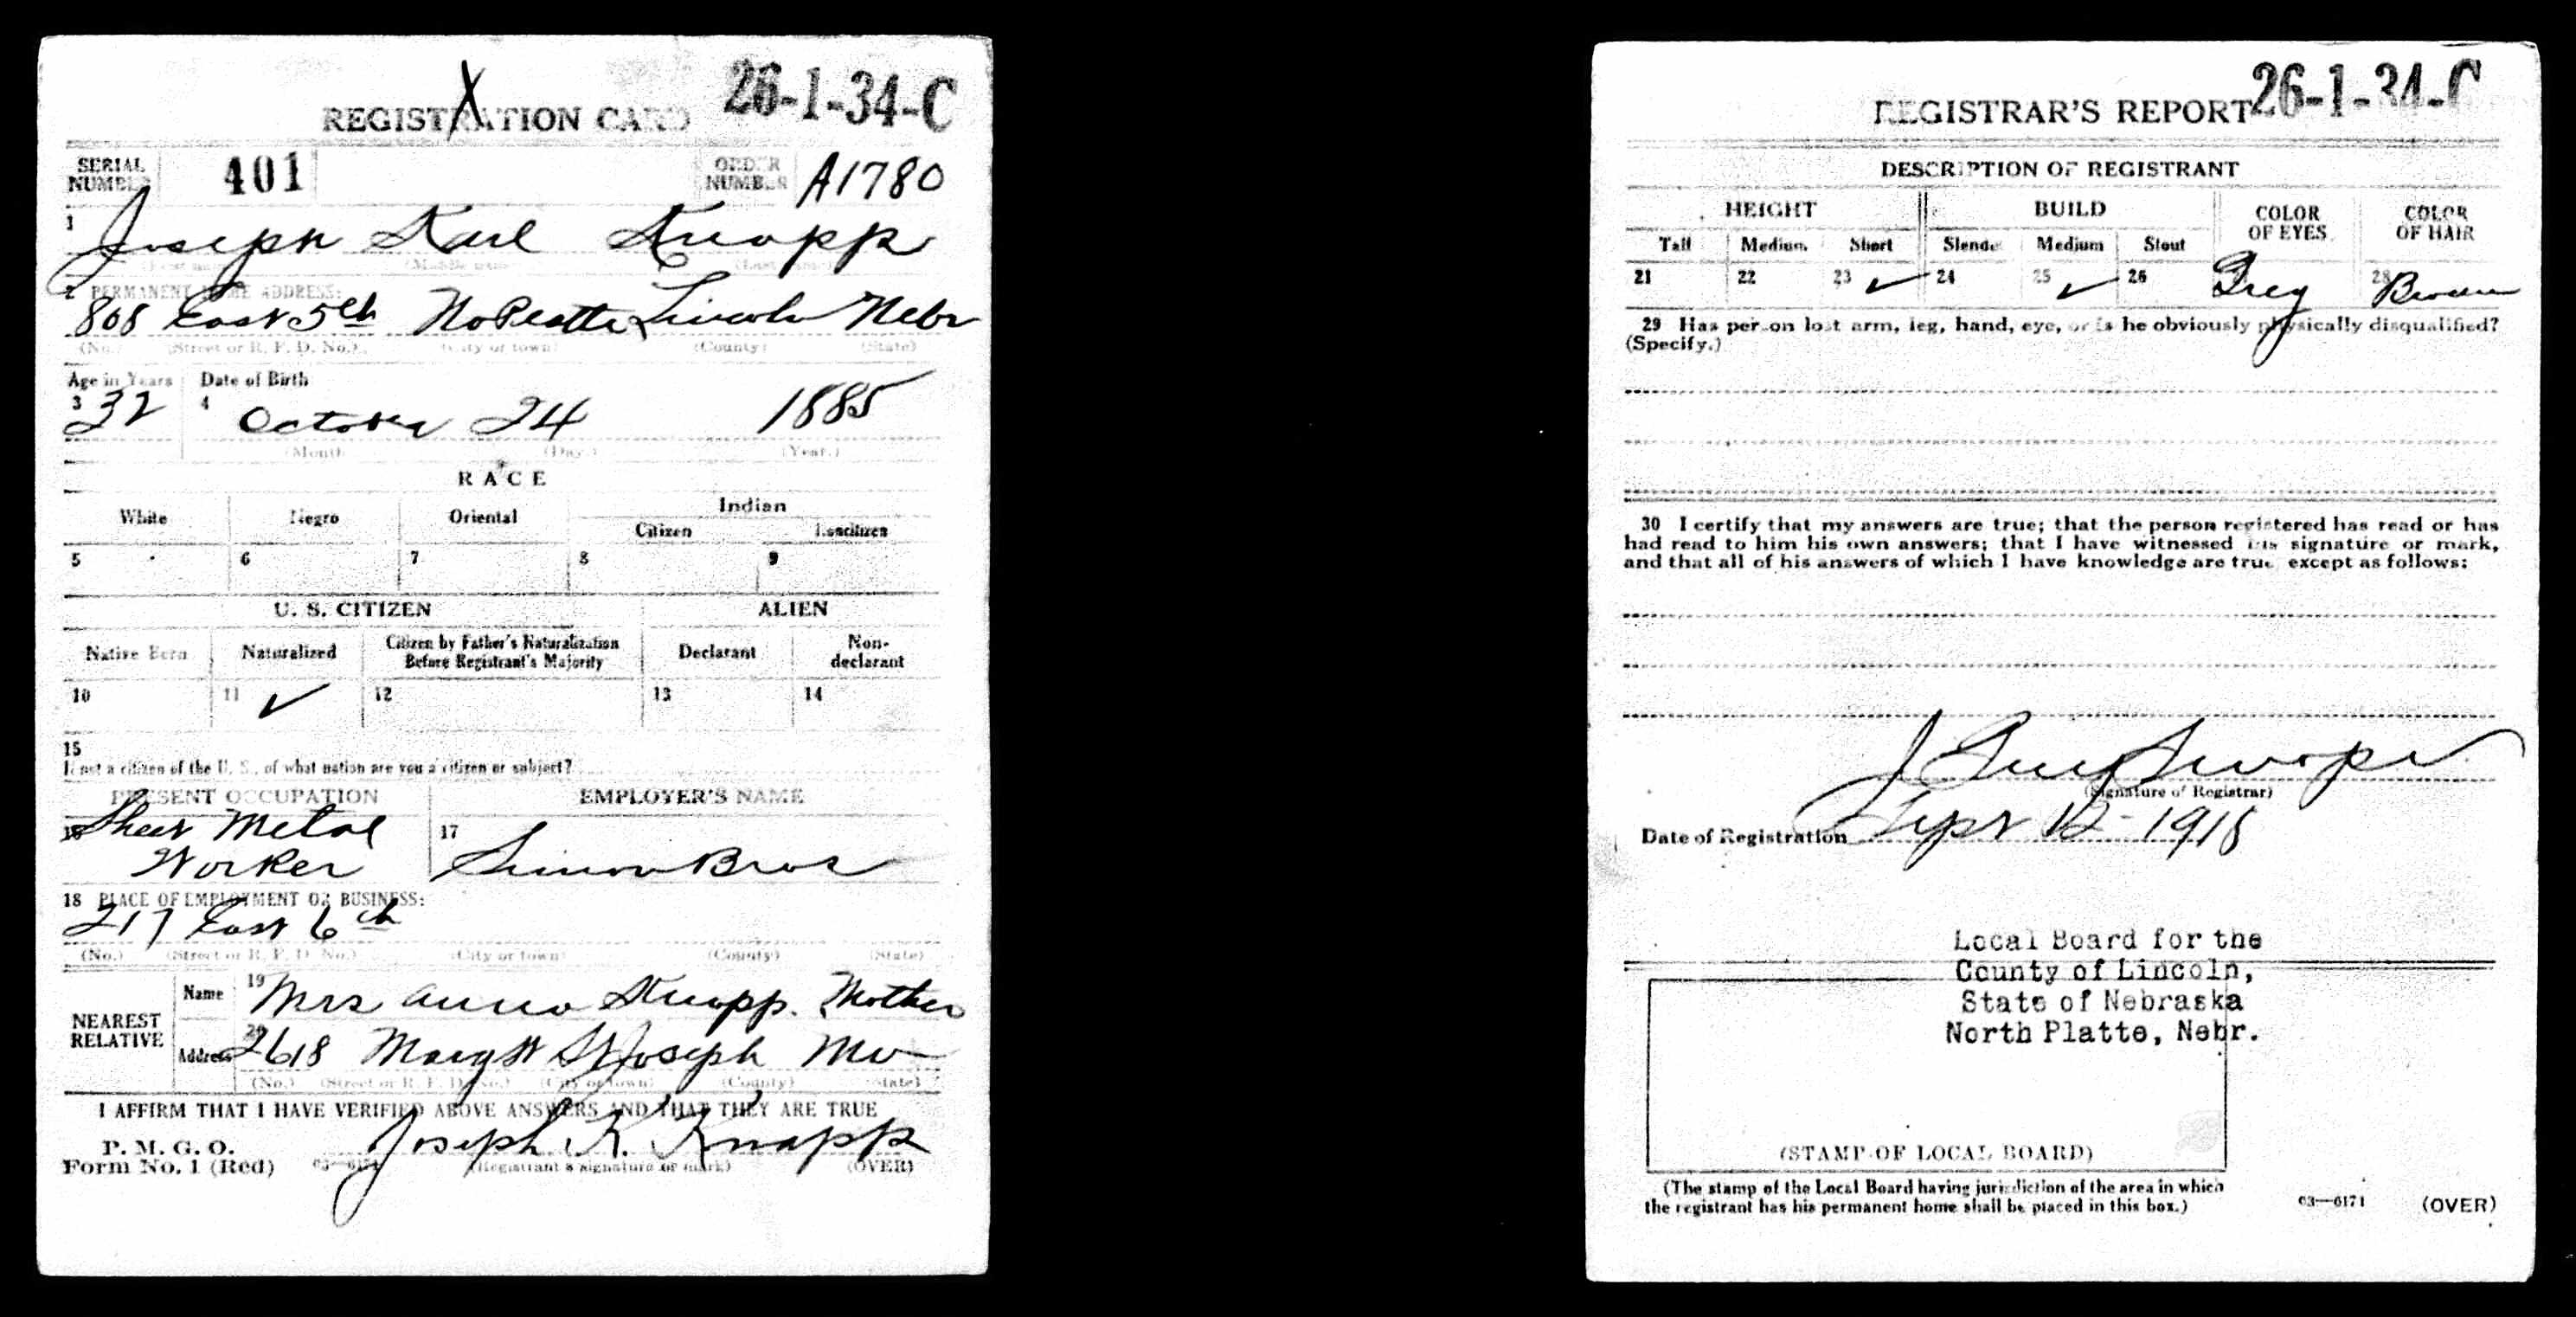 REGISTRATION CARD 26-1-34-C
X
SERIAL NUMBER 401 ORDER NUMBER A1780
1 Joseph Karl Knapp
(First name) (Middle name) (Last name)
2 PERMANENT HOME ADDRESS:
808 East 5th No Platte Lincoln Nebr
(No.) (Street or R. F. D. No.) (City or town) (County) (State)
Age in Years Date of Birth
3 32 4 October 24 1885
(Month) (Day.) (Year.)
RACE
White Negro Oriental Indian
Citizen Noncitizen
5 6 7 8 9
U. S. CITIZEN ALIEN
Native Born Naturalized Citizen by Father's Naturalization Before Registrant's Majority Declarant Non-declarant
10 11 ✓ 12 13 14
15
If not a citizen of the U. S., of what nation are you a citizen or subject?
PRESENT OCCUPATION EMPLOYER'S NAME
16 Sheet Metal Worker 17 Simon Bros
18 PLACE OF EMPLOYMENT OR BUSINESS:
217 East 6th
(No.) (Street or R. F. D. No.) (City or town) (County) (State)
NEAREST RELATIVE
Name 19 Mrs Anna Knapp. Mother
Address 20 2618 Mary St St Joseph Mo
(No.) (Street or R. F. D. No.) (City or town) (County) (State)
I AFFIRM THAT I HAVE VERIFIED ABOVE ANSWERS AND THAT THEY ARE TRUE
P. M. G. O.
Form No. 1 (Red) 03—6171 Joseph K. Knapp
(Registrant's signature or mark) (OVER)
REGISTRAR'S REPORT 26-1-34-C
DESCRIPTION OF REGISTRANT
HEIGHT BUILD COLOR OF EYES COLOR OF HAIR
Tall Medium Short Slender Medium Stout
21 22 23 ✓ 24 25 ✓ 26 Grey 28 Brown
29 Has person lost arm, leg, hand, eye, or is he obviously physically disqualified?
(Specify.)
30 I certify that my answers are true; that the person registered has read or has
had read to him his own answers; that I have witnessed his signature or mark,
and that all of his answers of which I have knowledge are true, except as follows:
J Guy Swope
(Signature of Registrar)
Date of Registration Sept 12 - 1918
Local Board for the
County of Lincoln,
State of Nebraska
North Platte, Nebr.
(STAMP OF LOCAL BOARD)
(The stamp of the Local Board having jurisdiction of the area in which
the registrant has his permanent home shall be placed in this box.)
03—6171 (OVER)